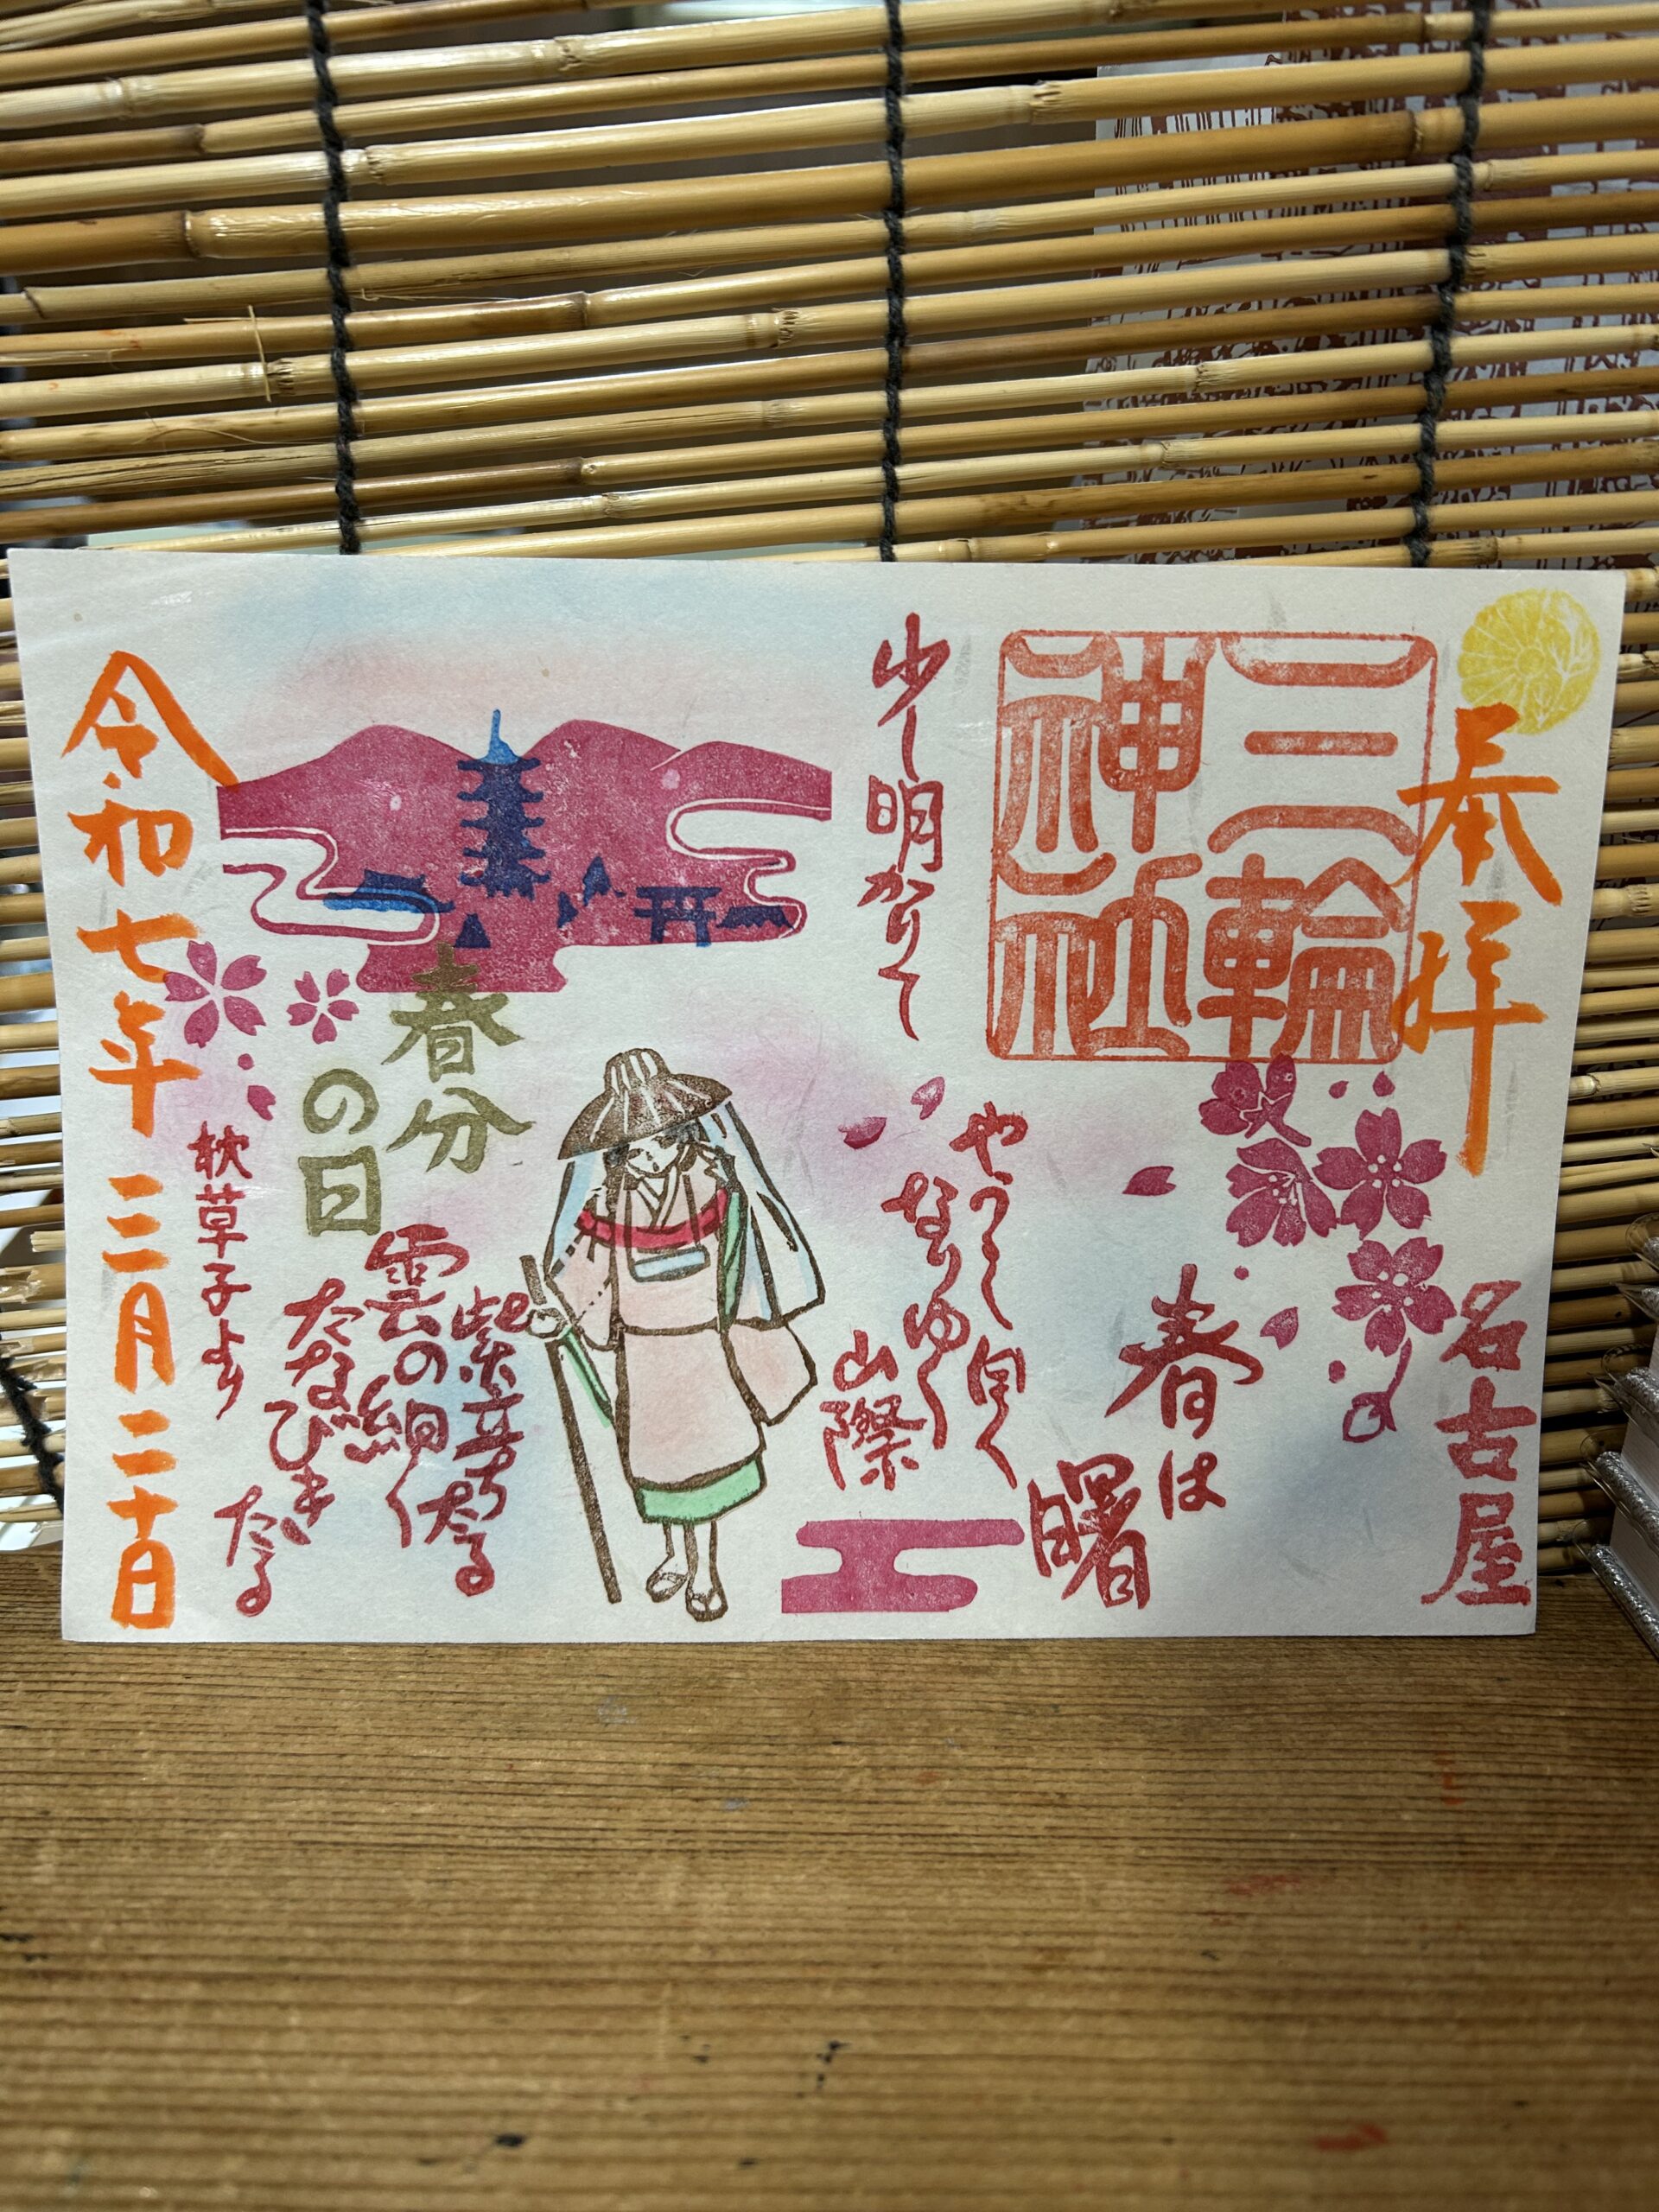 奉拝
三輪
神社
名古屋
春は
曙
やうやう白く
なりゆく
山際
少し明かりて
紫立ちたる
雲の細く
たなびき
たる
枕草子より
春分
の日
令和七年三月二十日